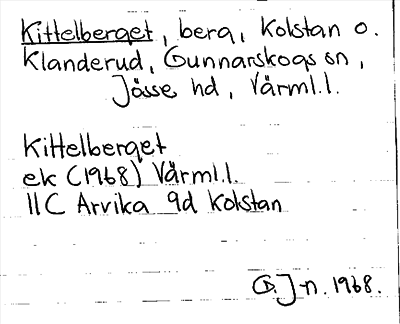 Kittelberget, berg, Kolstan o.
Klanderud, Gunnarskogs sn,
Jösse hd, Värml.l.
Kittelberget
ek (1968) Värml.l.
11C Arvika 9d Kolstan
G. J-n. 1968.